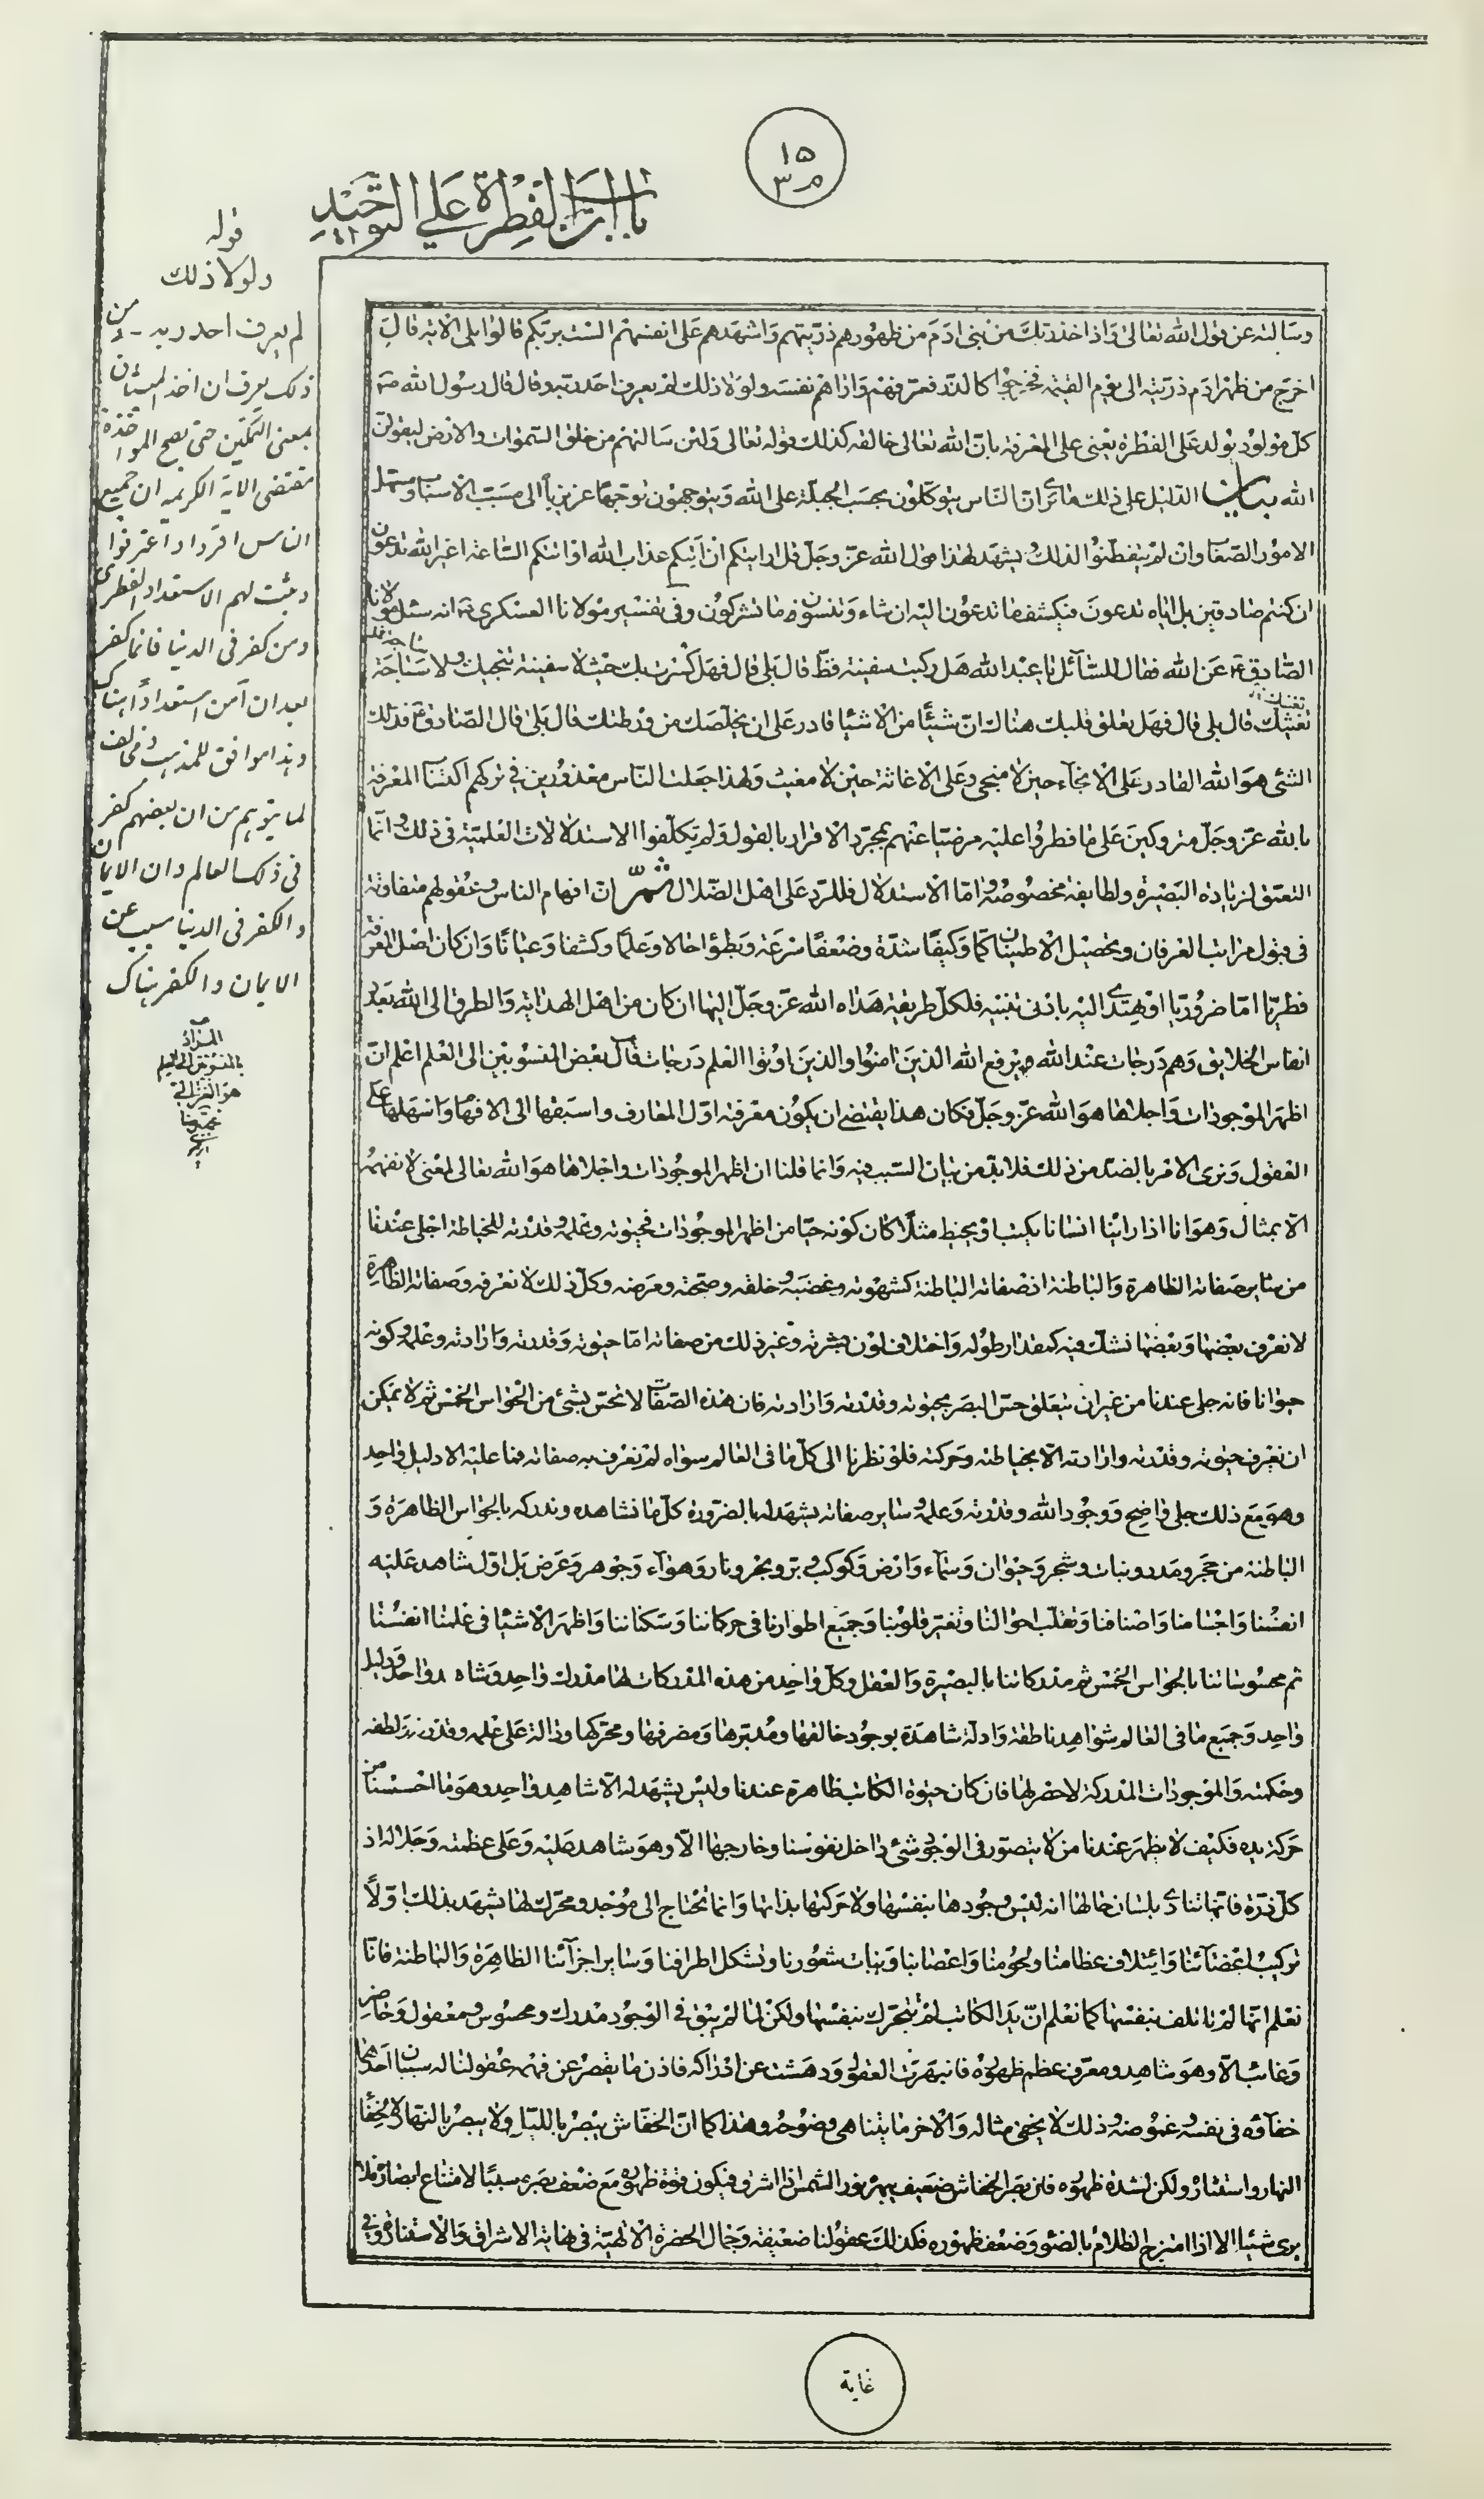 ١٥
م٣
باب ان الفطرة على التوحيد
وسالته عن قول الله تعالى واذ اخذ ربك من بنى ادم من ظهورهم ذريتهم واشهدهم على انفسهم الست بربكم قالوا بلى الاية قال
اخرج من ظهر ادم ذريته الى يوم القيمة فخرجوا كالذر فعرفهم واراهم نفسه ولولا ذلك لم يعرف احد ربه وقال قال رسول الله ص
كل مولود يولد على الفطرة يعنى على المعرفة بان الله تعالى خالقه كذلك قوله تعالى ولئن سالتهم من خلق السموات والارض ليقولن
الله بيان الدليل على ذلك ما ترى ان الناس يتوكلون بحسب الجبلة على الله ويتوجهون توجها غريزيا الى مسبب الاسباب ومسهل
الامور الصعاب وان لم يتفطنوا لذلك يشهد لهذا قول الله عز وجل قل ارايتكم ان اتيكم عذاب الله او اتتكم الساعة اغير الله تدعون
ان كنتم صادقين بل اياه تدعون فيكشف ما تدعون اليه ان شاء وتنسون ما تشركون وفى تفسير مولانا العسكرى ع انه سئل مولانا
الصادق ع عن الله فقال للسائل يا عبد الله هل ركبت سفينة قط قال بلى قال فهل كسرت بك حيث لا سفينة تنجيك ولا سباحة
تغنيك قال بلى قال فهل تعلق قلبك هناك ان شيئا من الاشياء قادر على ان يخلصك من ورطتك قال بلى قال الصادق ع فذلك
الشئ هو الله القادر على الانجاء حين لا منجى وعلى الاغاثة حين لا مغيث ولهذا جعلت الناس معذورين فى تركهم اكتساب المعرفة
بالله عز وجل متروكين على ما فطروا عليه مرضيا عنهم بمجرد الاقرار بالقول ولم يكلفوا الاستدلالات العلمية فى ذلك وانما
التعمق لزيادة البصيرة ولطايفة مخصوصة واما الاستدلال فللرد على اهل الضلال ثم ان افهام الناس وعقولهم متفاوتة
فى قبول مراتب العرفان وتحصيل الاطمينان كما وكيفا شدة وضعفا سرعة وبطؤا حالا وعلما وكشفا وعيانا وان كان اصل المعرفة
فطريا اما ضروريا او يهتدى اليه بادنى تنبيه فلكل طريقة هداه الله عز وجل اليها ان كان من اهل الهداية والطرق الى الله بعدد
انفاس الخلايق وهم درجات عند الله يرفع الله الذين امنوا والذين اوتوا العلم درجات قال بعض المنسوبين الى العلم اعلم ان
اظهر الموجودات واجلاها هو الله عز وجل فكان هذا يقتضى ان يكون معرفته اول المعارف واسبقها الى الافهام واسهلها على
العقول ونرى الامر بالضد من ذلك فلابد من بيان السبب فيه وانما قلنا ان اظهر الموجودات واجلاها هو الله تعالى لمعنى لا نفهمه
الا بمثال وهو انا اذا راينا انسانا يكتب او يخيط مثلا كان كونه حيا من اظهر الموجودات فحيوته وعلمه وقدرته للخياطة اجلى عندنا
من سائر صفاته الظاهرة والباطنة اذ صفاته الباطنة كشهوته وغضبه وخلقه وصحته ومرضه وكل ذلك لا نعرفه وصفاته الظاهرة
لا نعرف بعضها وبعضها نشك فيه كمقدار طوله واختلاف لون بشرته وغير ذلك من صفاته اما حيوته وقدرته وارادته وعلمه وكونه
حيوانا فانه جلى عندنا من غير ان يتعلق حس البصر بحيوته وقدرته وارادته فان هذه الصفات لا تحس بشئ من الحواس الخمس ثم لا يمكن
ان نعرف حيوته وقدرته وارادته الا بخياطته وحركته فلو نظرنا الى كل ما فى العالم سواه لم نعرف به صفاته فما عليه الا دليل واحد
وهو مع ذلك جلى واضح ووجود الله وقدرته وعلمه وسائر صفاته يشهد له بالضرورة كل ما نشاهده وندركه بالحواس الظاهرة و
الباطنة من حجر ومدر ونبات وشجر وحيوان وسماء وارض وكوكب وبر وبحر ونار وهواء وجوهر وعرض بل اول شاهد عليه
انفسنا واجسامنا واصنافنا وتقلب احوالنا وتغير قلوبنا وجميع اطوارنا فى حركاتنا وسكناتنا واظهر الاشياء فى علمنا انفسنا
ثم محسوساتنا بالحواس الخمس ثم مدركاتنا بالبصيرة والعقل وكل واحد من هذه المدركات لها مدرك واحد وشاهد واحد ودليل
واحد وجميع ما فى العالم شواهد ناطقة وادلة شاهدة بوجود خالقها ومدبرها ومصرفها ومحركها ودالة على علمه وقدرته ولطفه
وحكمته والموجودات المدركة لا حصر لها فان كان حيوة الكاتب ظاهرة عندنا وليس يشهد له الا شاهد واحد وهو ما احسسنا من
حركة يده فكيف لا يظهر عندنا من لا يتصور فى الوجود شئ داخل نفوسنا وخارجها الا وهو شاهد عليه وعلى عظمته وجلاله اذ
كل ذرة فانها تنادى بلسان حالها انه ليس وجودها بنفسها ولا حركتها بذاتها وانما تحتاج الى موجد ومحرك لها يشهد بذلك اولا
تركيب اعضائنا وايتلاف عظامنا ولحومنا واعصابنا ونبات شعورنا وتشكل اطرافنا وسائر اجزائنا الظاهرة والباطنة فانا
نعلم انها لم تاتلف بنفسها كما نعلم ان يد الكاتب لم تتحرك بنفسها ولكن لما لم يبق فى الوجود مدرك ومحسوس ومعقول وحاضر
وغائب الا وهو شاهد ومعرف عظم ظهوره فانبهرت العقول ودهشت عن ادراكه فاذن ما يقصر عن فهمه عقولنا له سببان احدهما
خفاؤه فى نفسه وغموضه وذلك لا يخفى مثاله والاخر ما يتناهى وضوحه وهذا كما ان الخفاش يبصر بالليل ولا يبصر بالنهار لا لخفاء
النهار واستتاره ولكن لشدة ظهوره فان بصر الخفاش ضعيف يبهره نور الشمس اذا اشرق فيكون قوة ظهوره مع ضعف بصره سببا لامتناع ابصاره فلا
يرى شيئا الا اذا امتزج الظلام بالضوء وضعف ظهوره فكذلك عقولنا ضعيفة وجمال الحضرة الالهية فى نهاية الاشراق والاستنارة وفى
غاية
قوله
ولولا ذلك
لم يعرف احد ربه من
ذلك يعرف ان اخذ الميثاق
بمعنى التمكين حتى يصح المواخذة
مقتضى الاية الكريمة ان جميع
الناس اقروا واعترفوا
وثبت لهم الاستعداد الفطرى
ومن كفر فى الدنيا فانما كفر
بعد ان آمن استعدادا هناك
وهذا موافق للمذهب ومخالف
لما يتوهم من ان بعضهم كفر
فى ذلك العالم وان الايمان
والكفر فى الدنيا سبب عن
الايمان والكفر هناك
المراد
بالمنسوب الى العلم
هو الغزالى